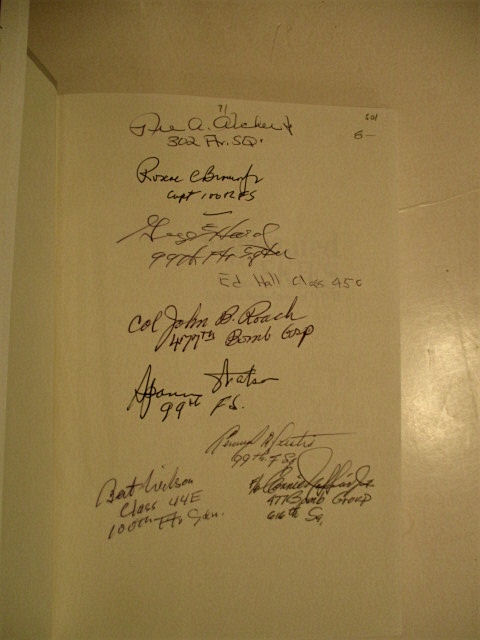 Lee A. Archer Jr
302 Ftr. SQ.
501
6-
Roscoe C Brown Jr
Capt 100th FS
99th Ftr Sqdn
Ed Hall Class 45C
Col John B. Roach
477TH Bomb Grp
Spann Watson
99TH F.S.
99th F Sq
Bert Wilson
Class 44E
100th Ftr Sqn.
477 Bomb Group
616th Sq,